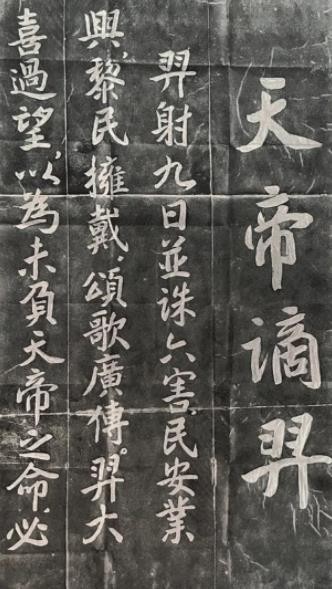 天帝谪羿
羿射九日並诛六害,民安業
興,黎民擁戴,頌歌廣傳。羿大
喜過望,以為未負天帝之命,必